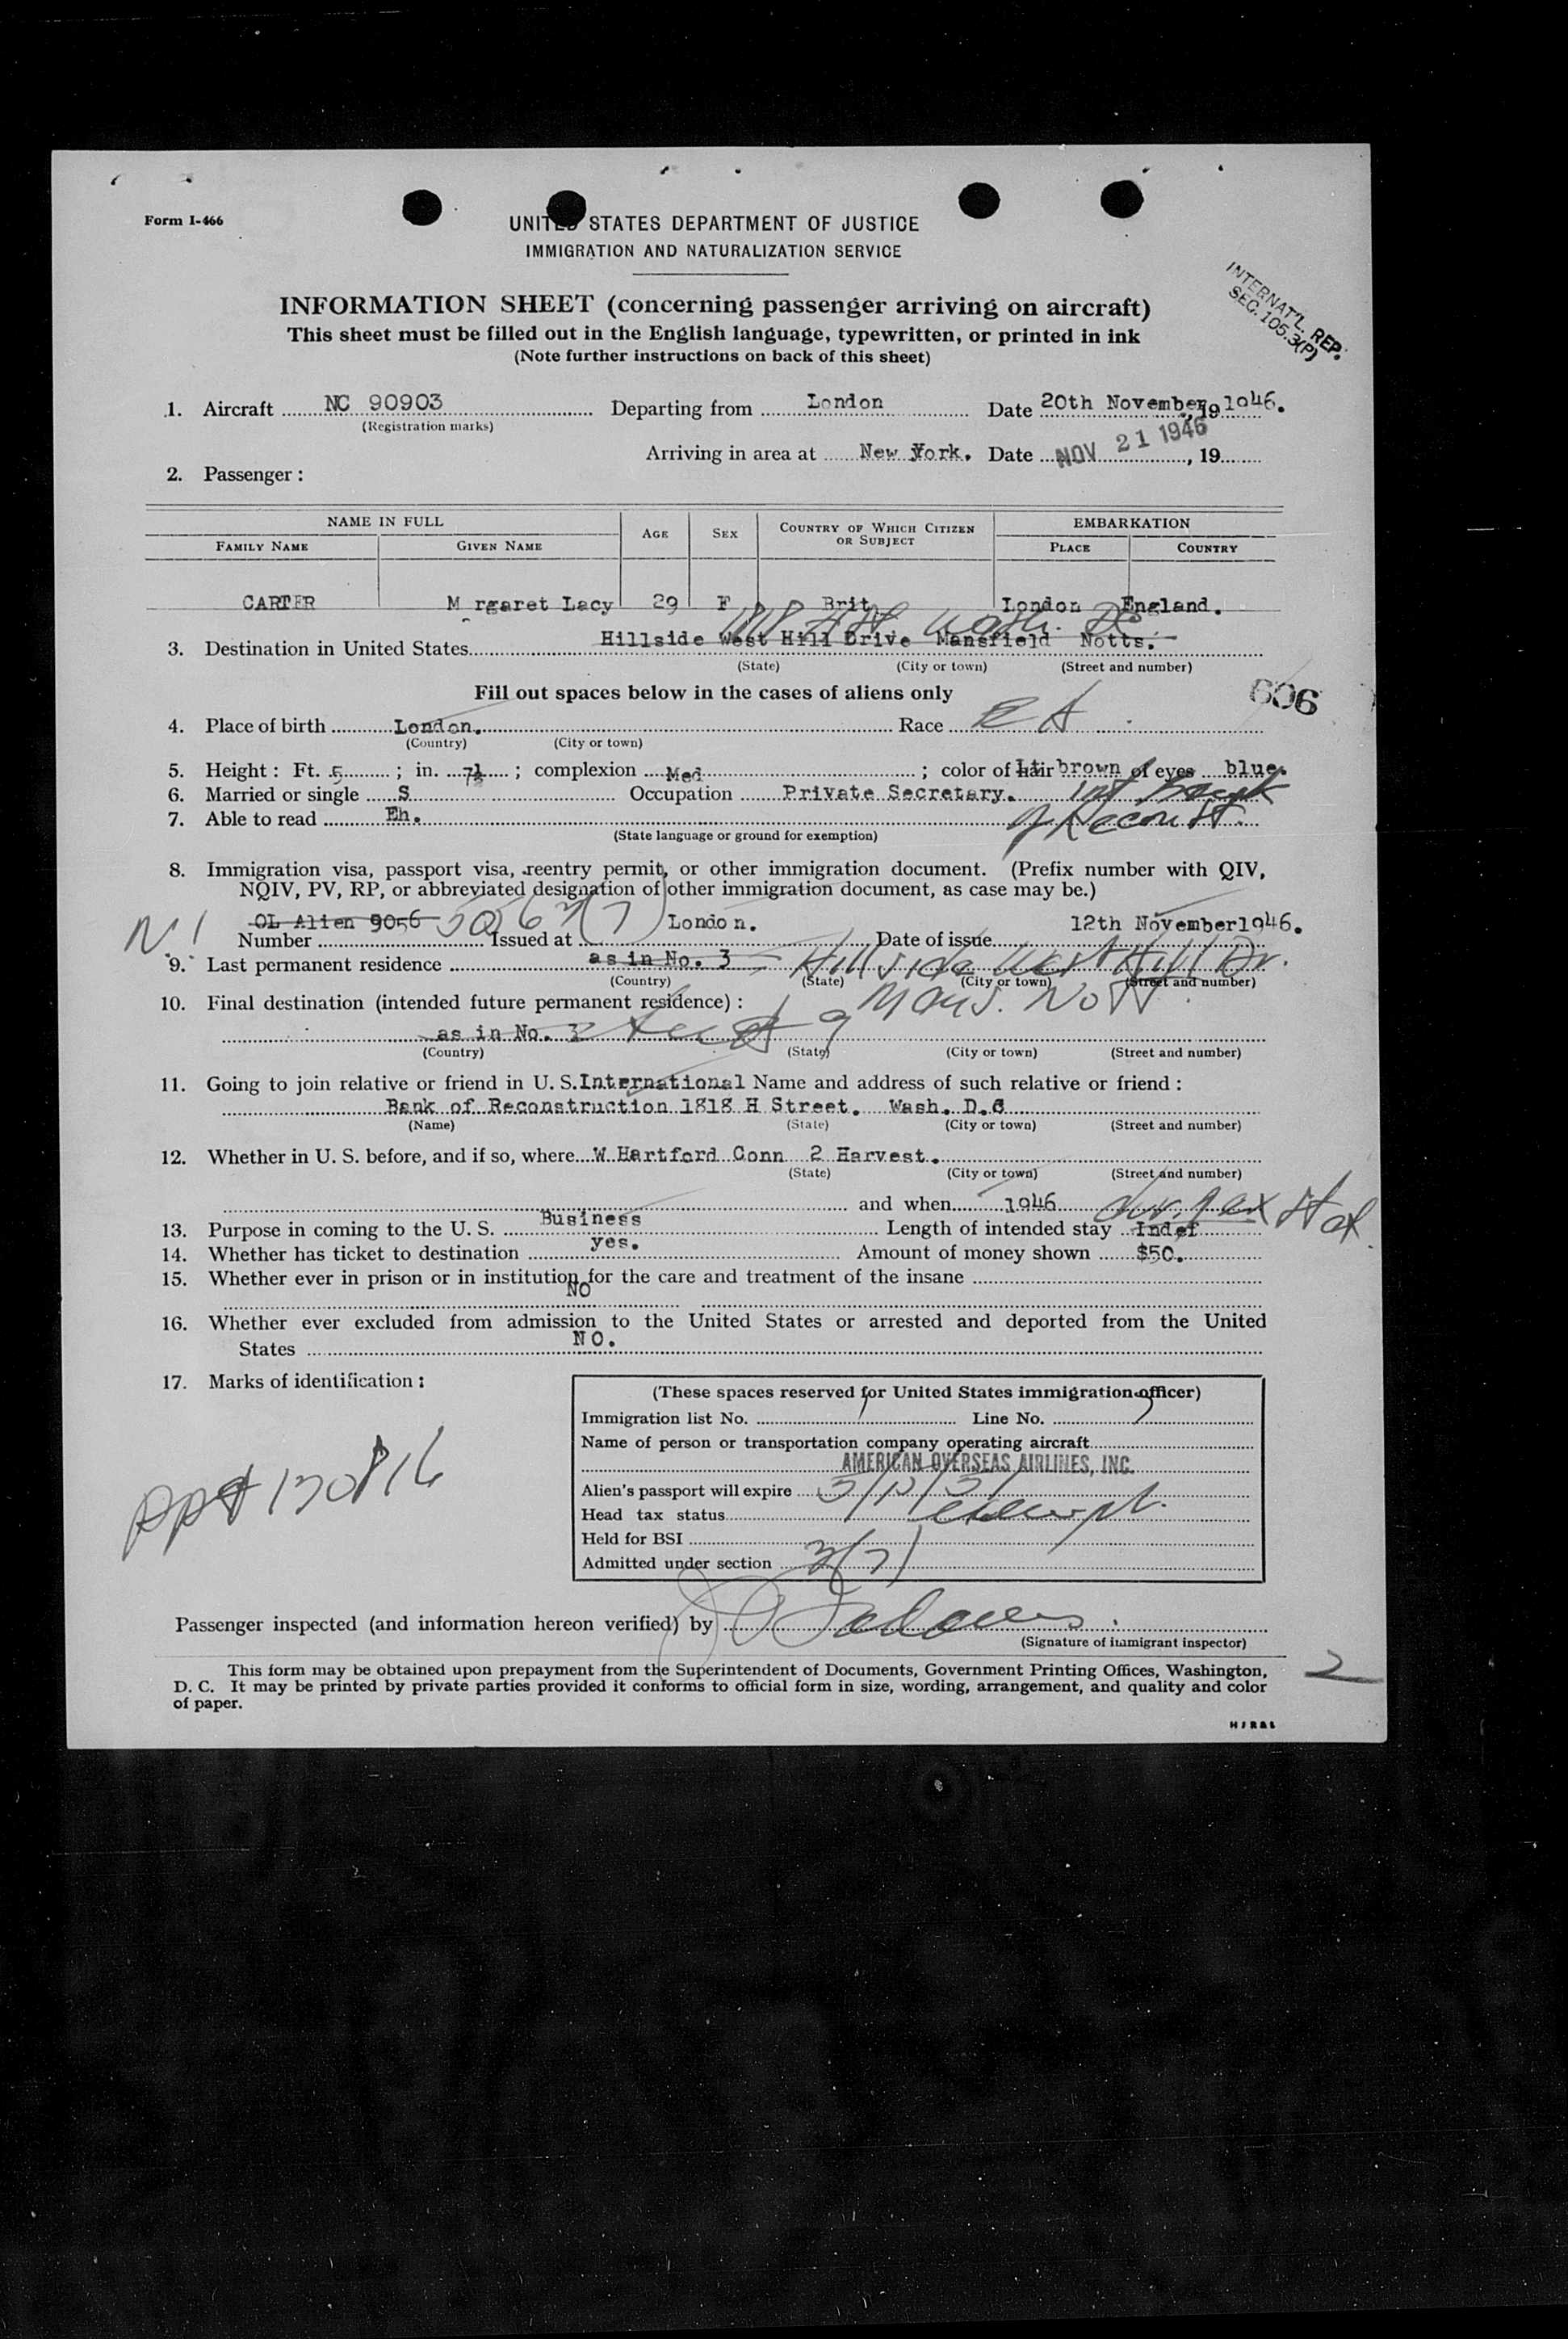 Form I-466
UNITED STATES DEPARTMENT OF JUSTICE
IMMIGRATION AND NATURALIZATION SERVICE
INTERNAT'L. REP.
SEC. 105.3(P)
INFORMATION SHEET (concerning passenger arriving on aircraft)
This sheet must be filled out in the English language, typewritten, or printed in ink
(Note further instructions on back of this sheet)
1. Aircraft NC 90903 Departing from London Date 20th November, 19 1946.
(Registration marks)
Arriving in area at New York. Date NOV 21 1946, 19
2. Passenger:
NAME IN FULL AGE SEX COUNTRY OF WHICH CITIZEN OR SUBJECT EMBARKATION
FAMILY NAME GIVEN NAME PLACE COUNTRY
CARTER M rgaret Lacy 29 F Brit London England.
1818 H St. Wash. DC
3. Destination in United States Hillside West Hill Drive Mansfield Notts.
(State) (City or town) (Street and number)
Fill out spaces below in the cases of aliens only
606
4. Place of birth London. Race
(Country) (City or town)
5. Height: Ft. 5; in. 7½; complexion Med; color of hair Lt brown of eyes blue.
6. Married or single S Occupation Private Secretary. Int Bank
7. Able to read Eh. of Reconst.
(State language or ground for exemption)
8. Immigration visa, passport visa, reentry permit, or other immigration document. (Prefix number with QIV,
NQIV, PV, RP, or abbreviated designation of other immigration document, as case may be.)
OL Alien 9056 3(7) London. 12th November 1946.
Number Issued at Date of issue
9. Last permanent residence as in No. 3 Hillside West Hill Dr.
(Country) (State) (City or town) (Street and number)
Mans. Nott
10. Final destination (intended future permanent residence):
as in No. 3
(Country) (State) (City or town) (Street and number)
11. Going to join relative or friend in U. S. International Name and address of such relative or friend:
Bank of Reconstruction 1818 H Street. Wash. D.C
(Name) (State) (City or town) (Street and number)
12. Whether in U. S. before, and if so, where W Hartford Conn 2 Harvest.
(State) (City or town) (Street and number)
and when 1946
13. Purpose in coming to the U. S. Business Length of intended stay Indef
14. Whether has ticket to destination yes. Amount of money shown $50.
15. Whether ever in prison or in institution for the care and treatment of the insane
NO
16. Whether ever excluded from admission to the United States or arrested and deported from the United
States NO.
17. Marks of identification:
(These spaces reserved for United States immigration officer)
Immigration list No. Line No.
Name of person or transportation company operating aircraft
AMERICAN OVERSEAS AIRLINES, INC.
Alien's passport will expire
Head tax status exempt.
Held for BSI
Admitted under section 3(7)
ppt 130816
Passenger inspected (and information hereon verified) by
(Signature of immigrant inspector)
This form may be obtained upon prepayment from the Superintendent of Documents, Government Printing Offices, Washington,
D. C. It may be printed by private parties provided it conforms to official form in size, wording, arrangement, and quality and color
of paper.
2